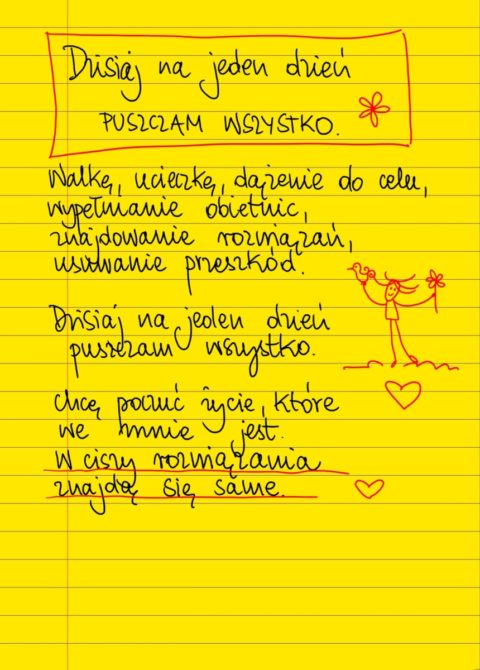 Dzisiaj na jeden dzień
PUSZCZAM WSZYSTKO.
Walkę, ucieczkę, dążenie do celu,
wypełnianie obietnic,
znajdowanie rozwiązań,
usuwanie przeszkód.
Dzisiaj na jeden dzień
puszczam wszystko.
Chcę poczuć życie, które
we mnie jest.
W ciszy rozwiązania
znajdą się same.